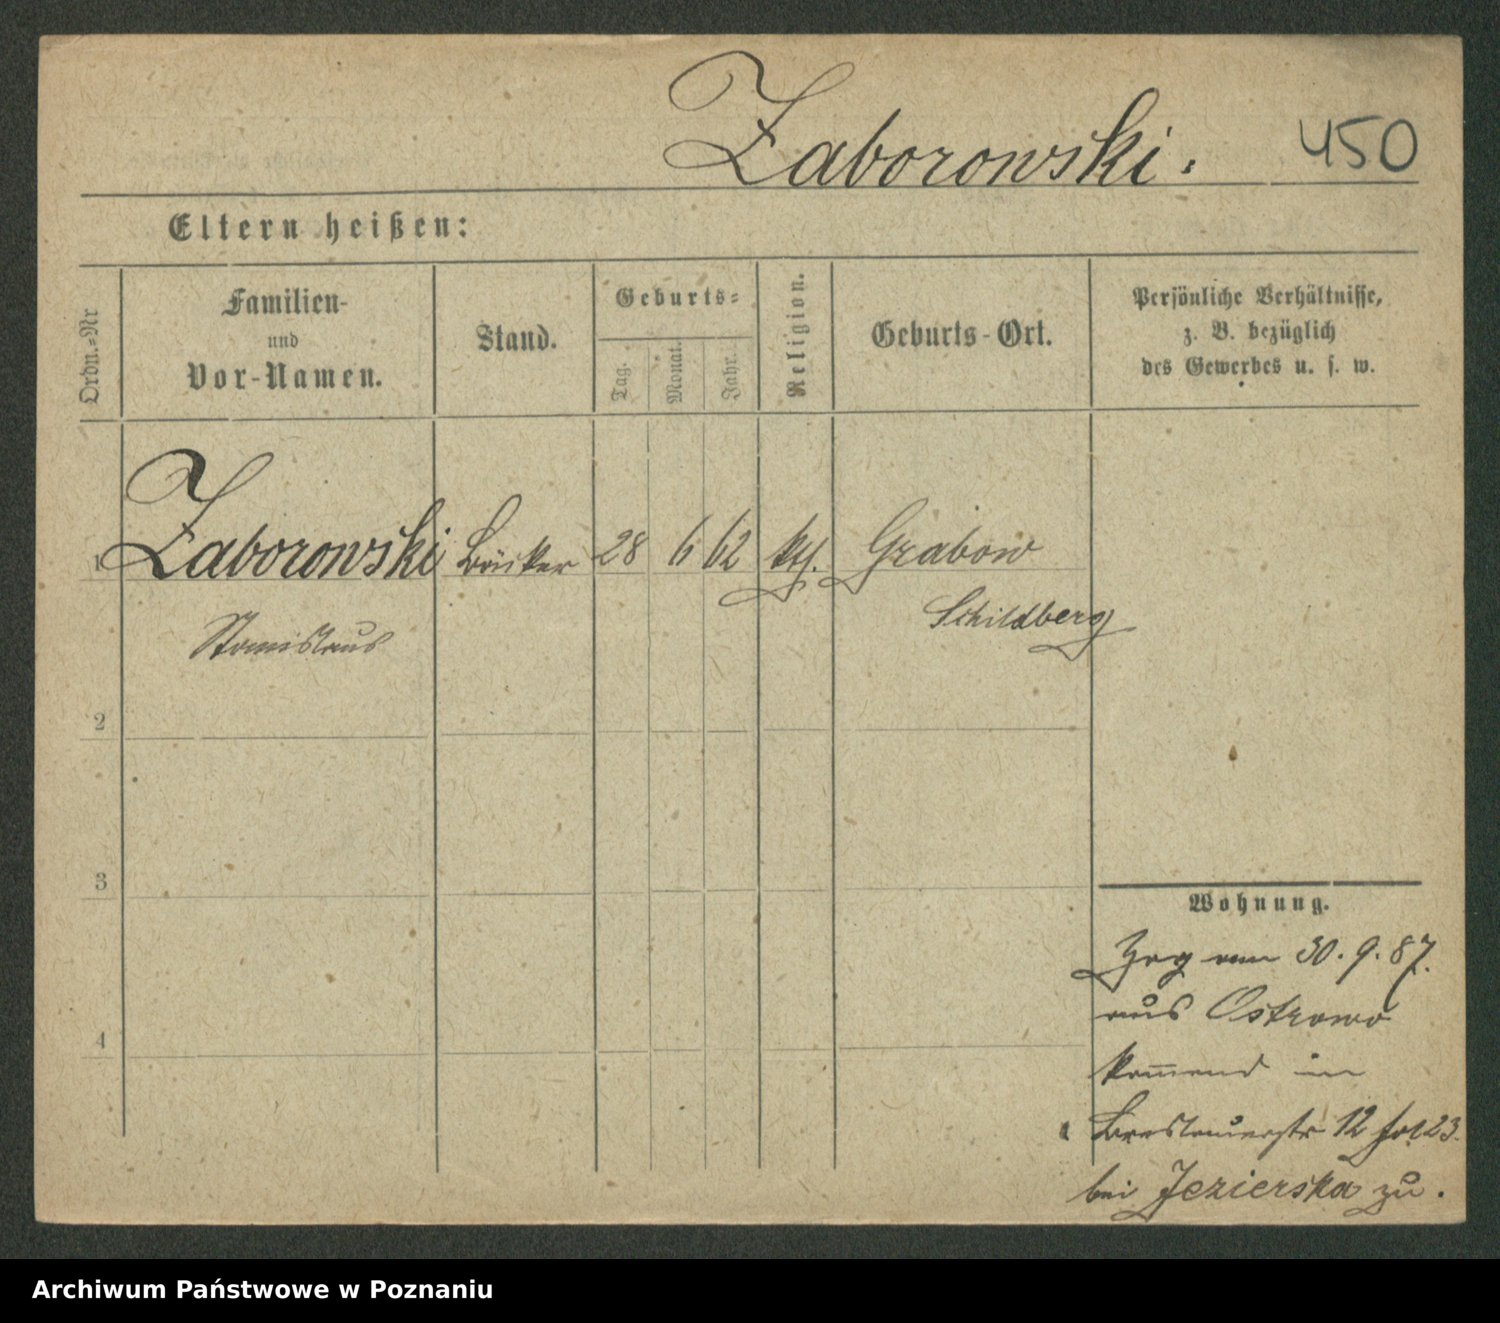 Zaborowski.
450
Eltern heißen:
Ordn.-Nr
Familien-
und
Vor-Namen.
Stand.
Geburts-
Tag.
Monat.
Jahr.
Religion.
Geburts-Ort.
Persönliche Verhältnisse,
z. B. bezüglich
des Gewerbes u. s. w.
1 Zaborowski Bäcker 28 6 62 kth. Grabow
Schildberg
Stanislaus
2
3
4
Wohnung.
Zog am 30.9.87.
aus Ostrowo
kom̅end in
Breslauerstr 12 fol 23.
bei Jezierska zu.
Archiwum Państwowe w Poznaniu